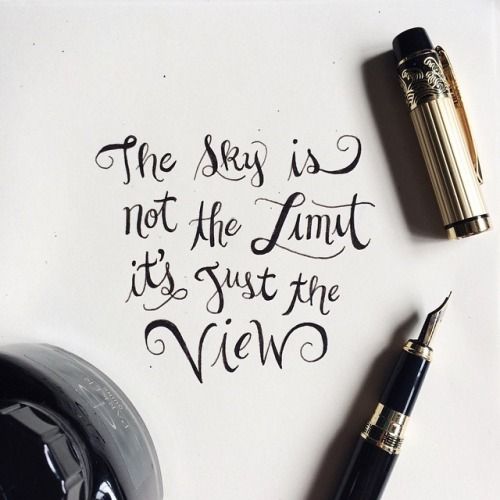 The Sky is
not the Limit
it's Just the
View